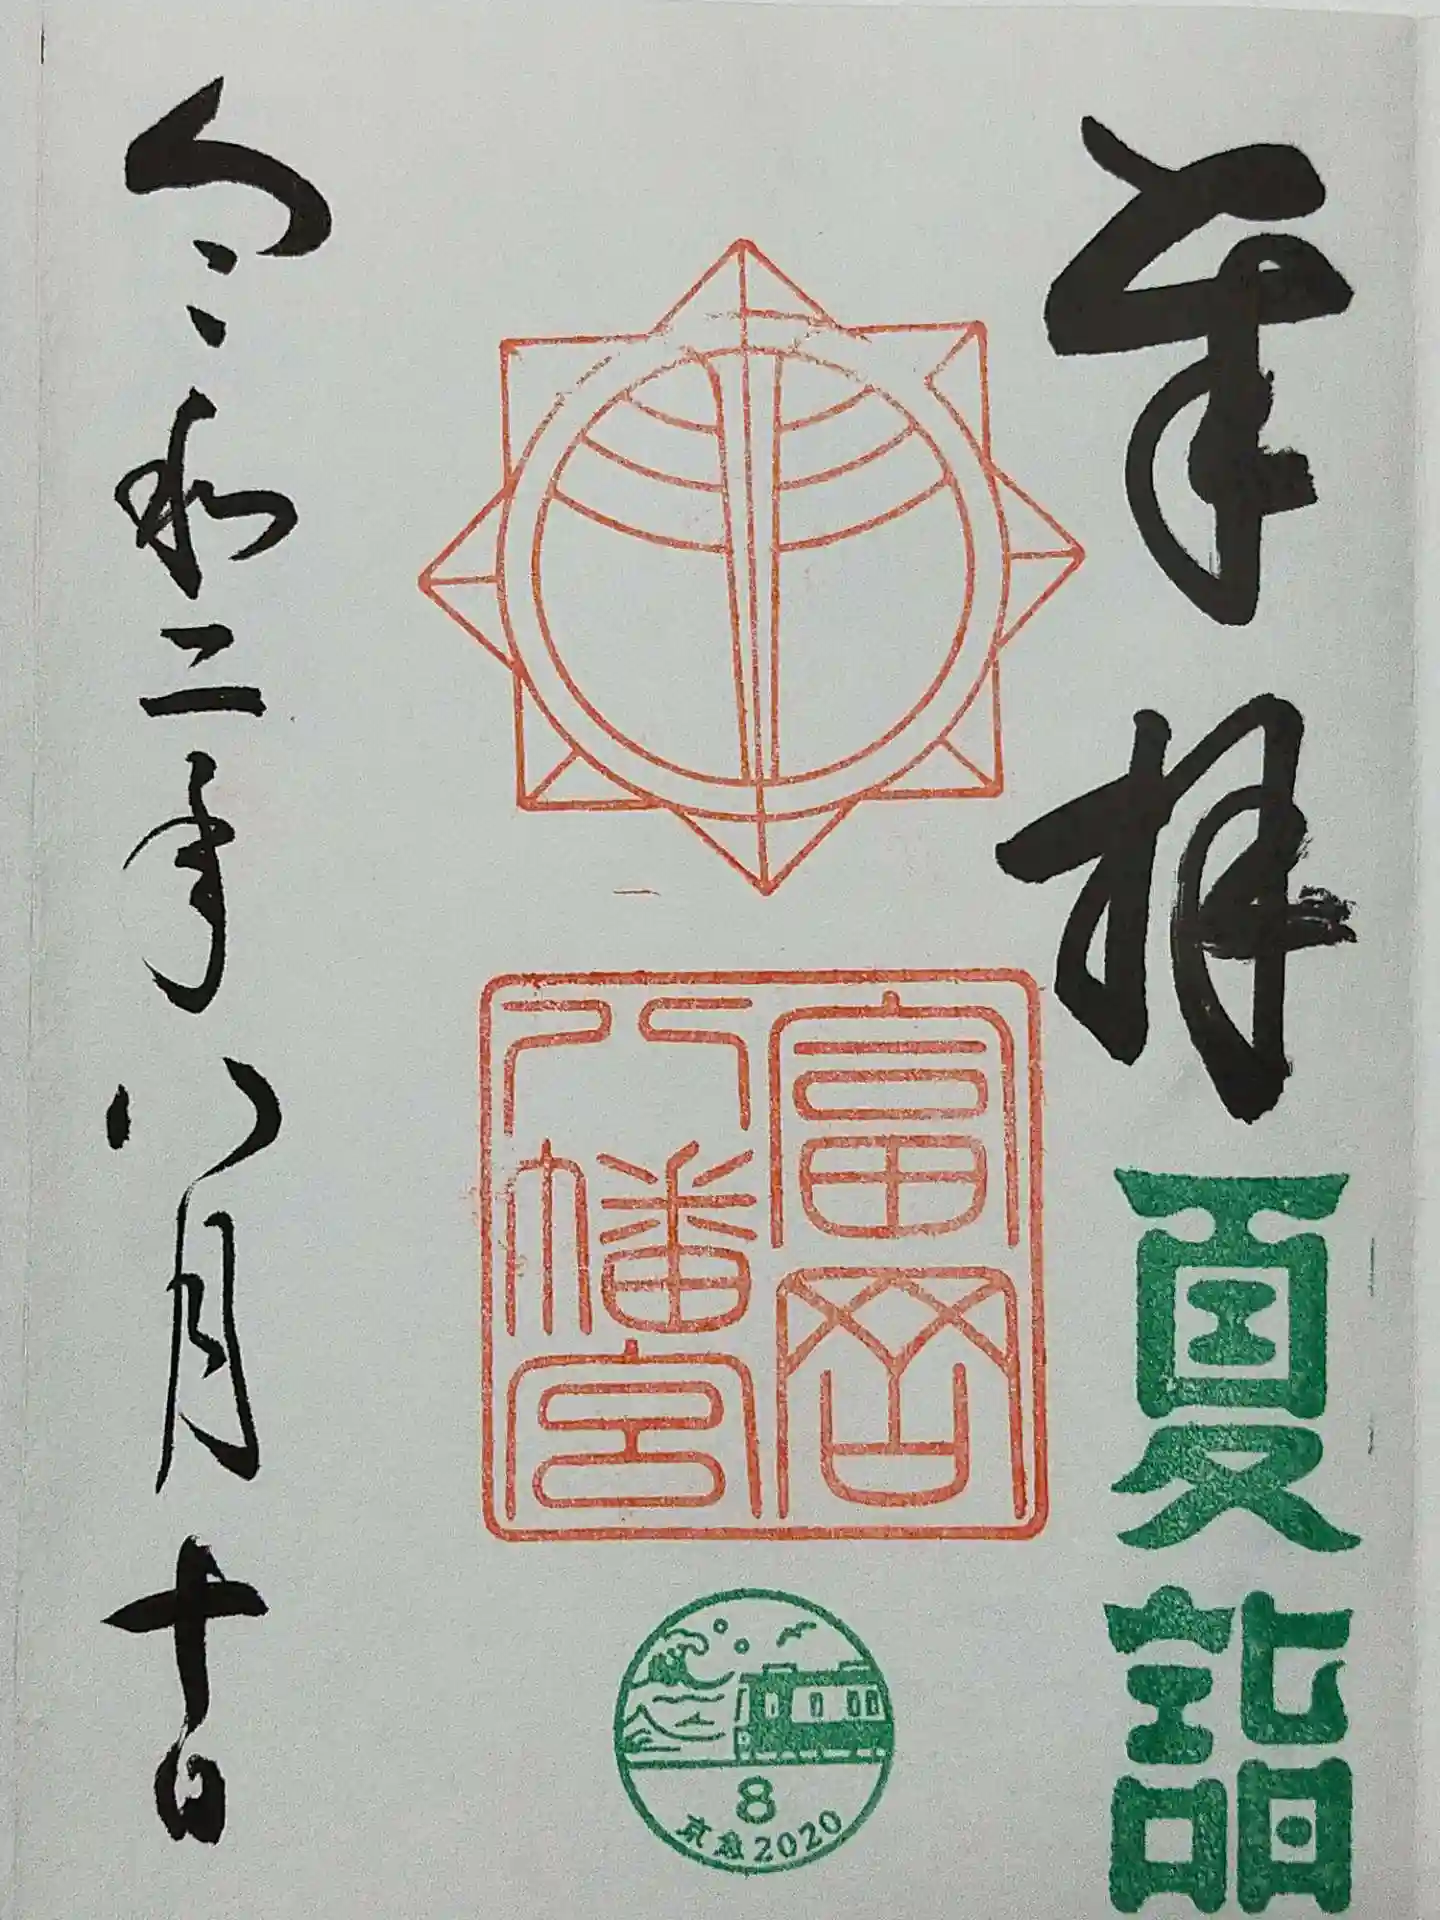 奉拝
夏詣
富岡
八幡宮
8
京急2020
令和二年八月十日